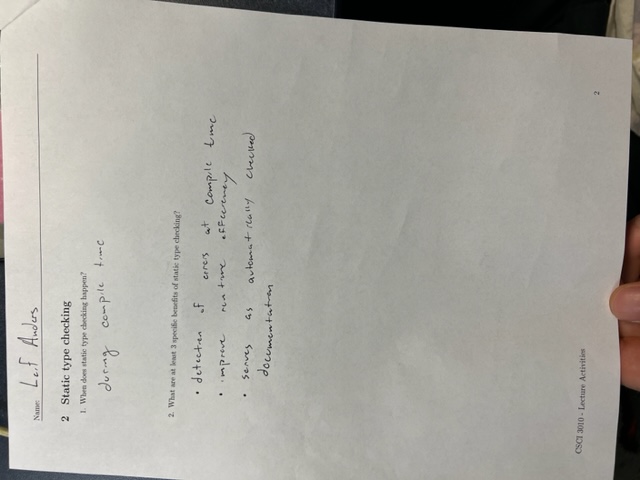 Name: Leif Anders
2 Static type checking
1. When does static type checking happen?
during compile time
2. What are at least 3 specific benefits of static type checking?
• detection of errors at compile time
• improve run time efficiency
• serves as automatically checked
documentation
CSCI 3010 - Lecture Activities
2